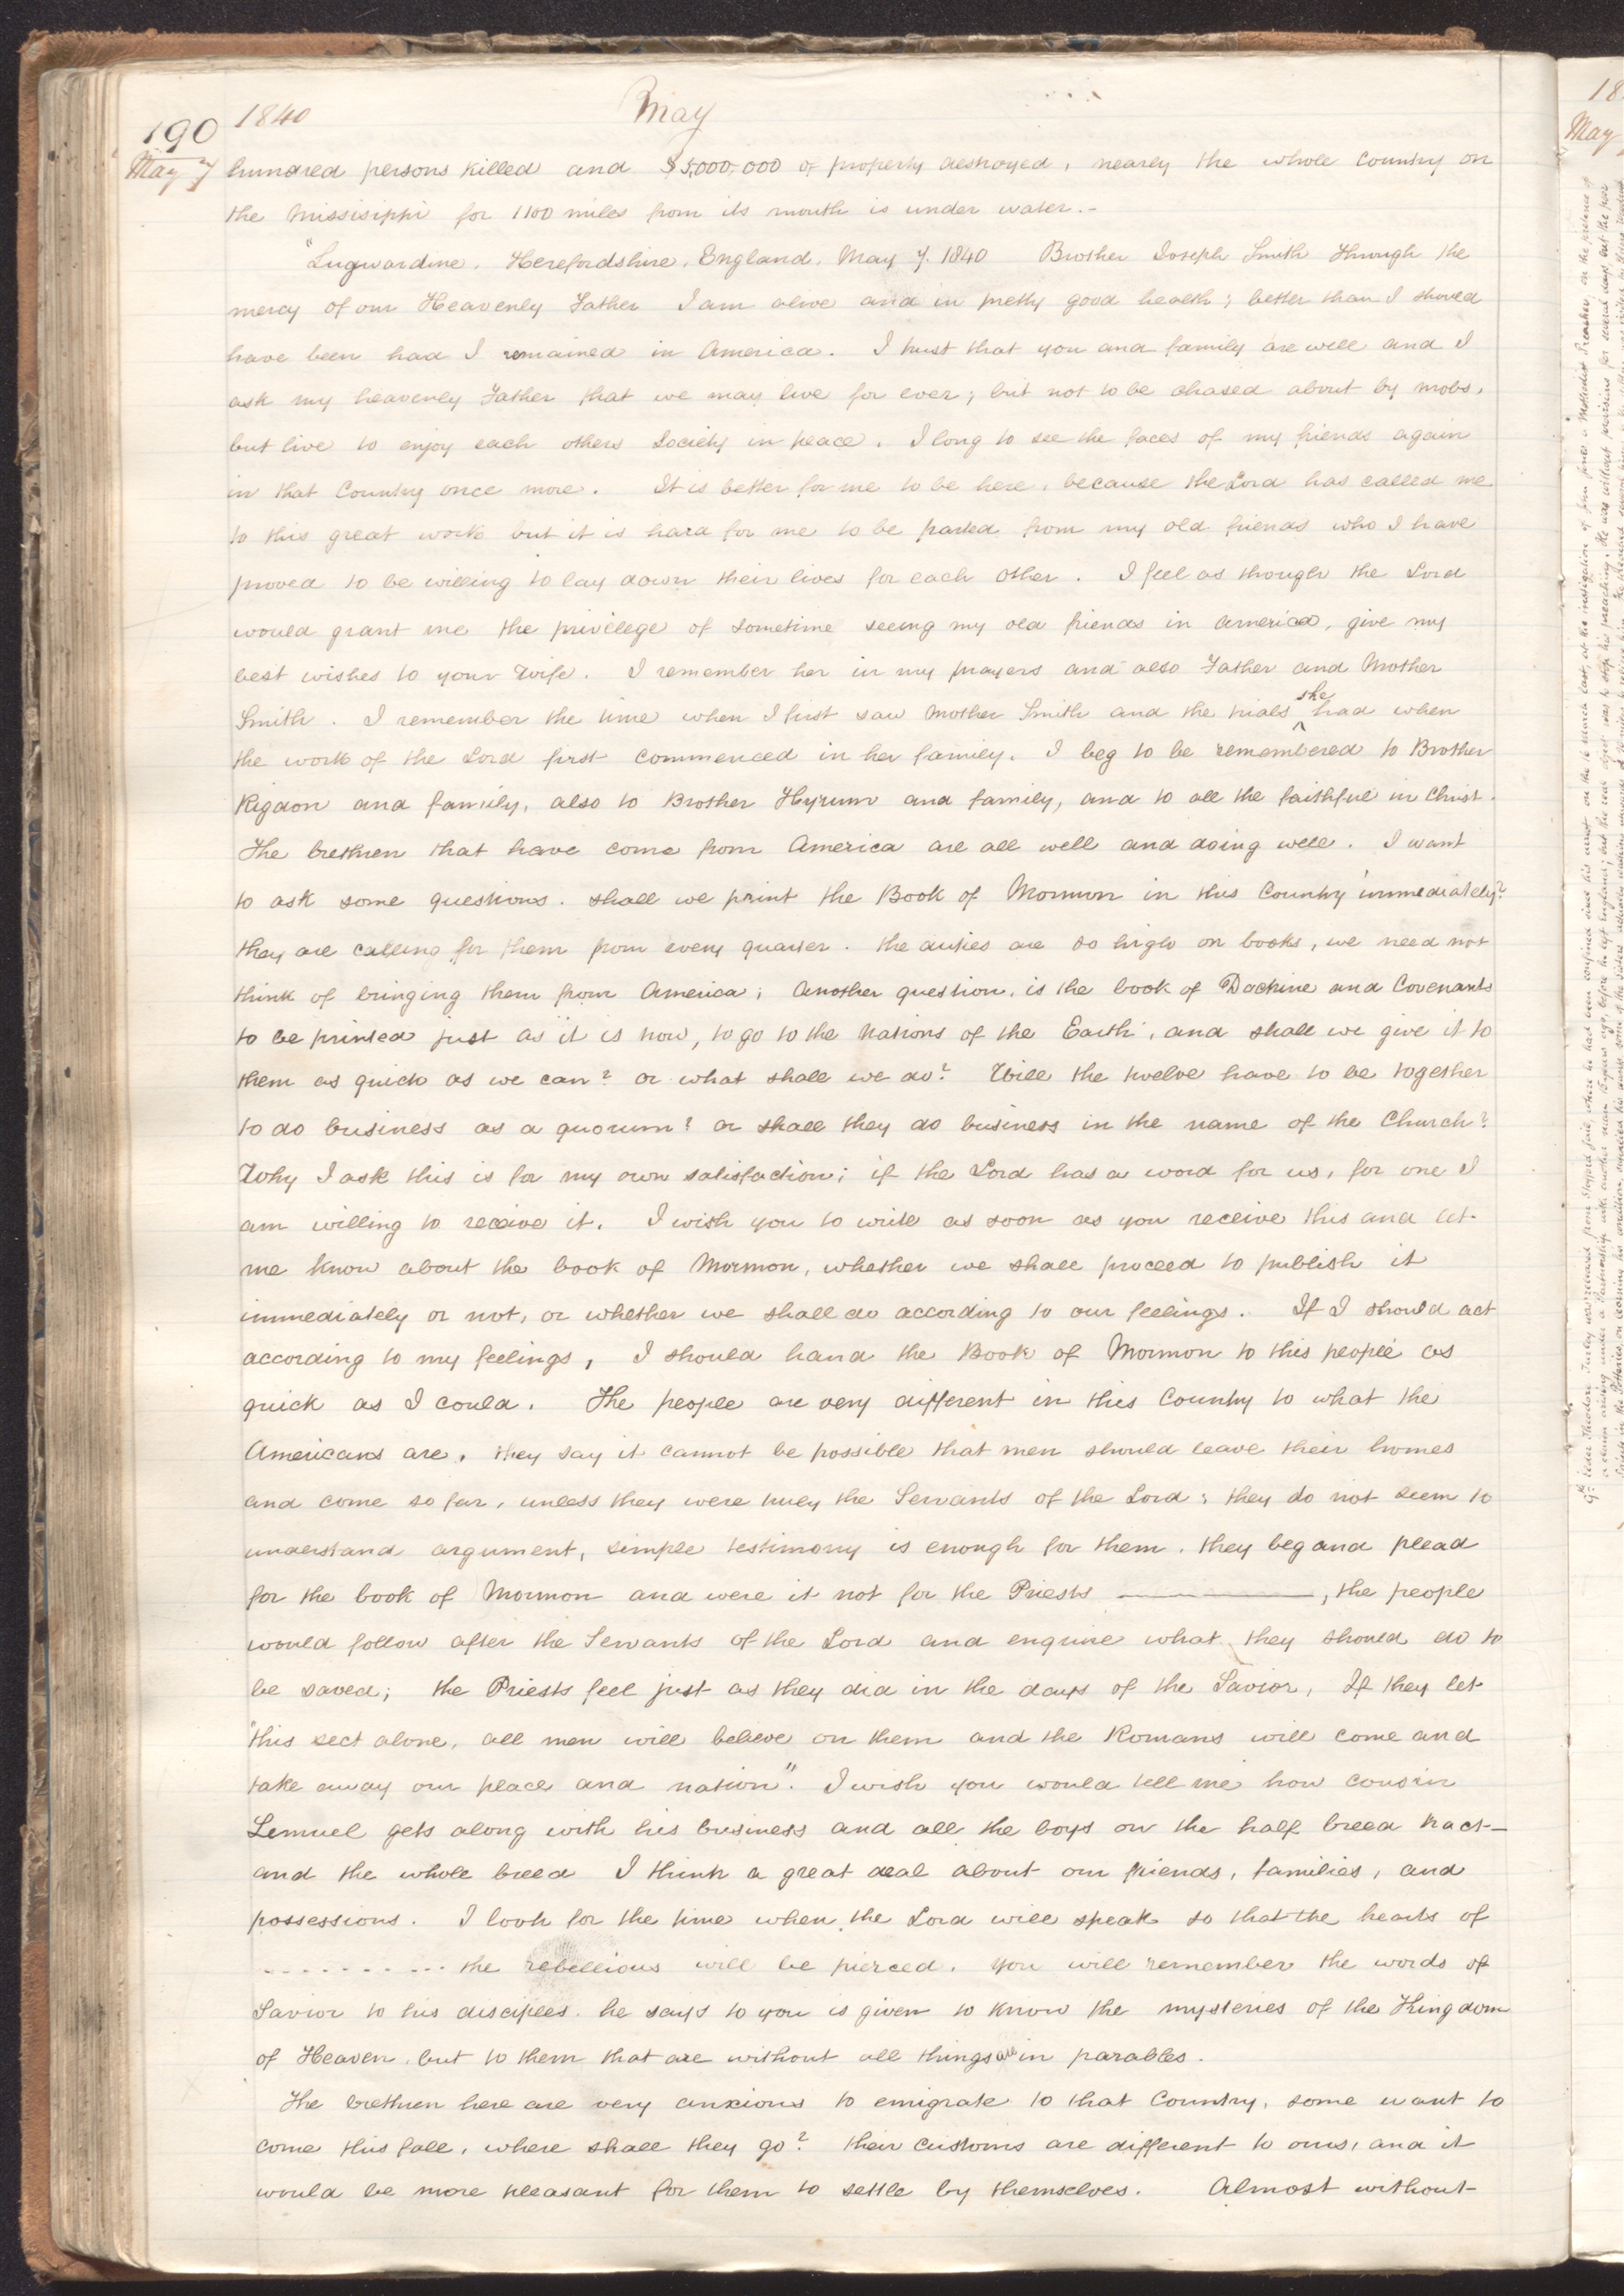 190 1840 May
May 7 hundred persons killed and $5,000,000 of property destroyed, nearly the whole Country on
the Missisippi for 1100 miles from its mouth is under water.-
"Lugwardine. Herefordshire. England. May 7. 1840 Brother Joseph Smith Through the
mercy of our Heavenly Father I am alive and in pretty good health; better than I should
have been had I remained in America. I trust that you and family are well and I
ask my heavenly Father that we may live for ever; but not to be chased about by mobs,
but live to enjoy each others Society in peace. I long to see the faces of my friends again
in that Country once more. It is better for me to be here, because the Lord has called me
to this great work but it is hard for me to be parted from my old friends who I have
proved to be willing to lay down their lives for each other. I feel as though the Lord
would grant me the privilege of sometime seeing my old friends in America, give my
best wishes to your Wife. I remember her in my prayers and also Father and Mother
Smith. I remember the time when I first saw Mother Smith and the trials she had when
the work of the Lord first commenced in her family. I beg to be remembered to Brother
Rigdon and family, also to Brother Hyrum and family, and to all the faithful in Christ.
The brethren that have come from America are all well and doing well. I want
to ask some questions. shall we print the Book of Mormon in this Country immediately?
they are calling for them from every quarter. the duties are so high on books, we need not
think of bringing them from America; Another question, is the book of Doctrine and Covenants
to be printed just as it is now, to go to the Nations of the Earth, and shall we give it to
them as quick as we can? or what shall we do? Will the twelve have to be together
to do business as a quorum? or shall they do business in the name of the Church?
Why I ask this is for my own satisfaction; if the Lord has a word for us, for one I
am willing to receive it. I wish you to write as soon as you receive this and let
me know about the book of Mormon, whether we shall proceed to publish it
immediately or not, or whether we shall do according to our feelings. If I should act
according to my feelings, I should hand the Book of Mormon to this people as
quick as I could. The people are very different in this Country to what the
Americans are, they say it cannot be possible that men should leave their homes
and come so far, unless they were truly the Servants of the Lord; they do not seem to
understand argument, simple testimony is enough for them. they beg and plead
for the book of Mormon and were it not for the Priests ————, the people
would follow after the Servants of the Lord and enquire what they should do to
be saved; the Priests feel just as they did in the days of the Savior, If they let
"this sect alone, all men will believe on them and the Romans will come and
take away our place and nation". I wish you would tell me how cousin
Lemuel gets along with his business and all the boys on the half breed tract—
and the whole breed I think a great deal about our friends, families, and
possessions. I look for the time when the Lord will speak so that the hearts of
.......... the rebellious will be pierced. You will remember the words of
Savior to his disciples. he says to you is given to know the mysteries of the Kingdom
of Heaven, but to them that are without all things are in parables.
The brethren here are very anxious to emigrate to that Country, some want to
come this fall, where shall they go? their customs are different to ours, and it
would be more pleasant for them to settle by themselves. Almost without
18
May